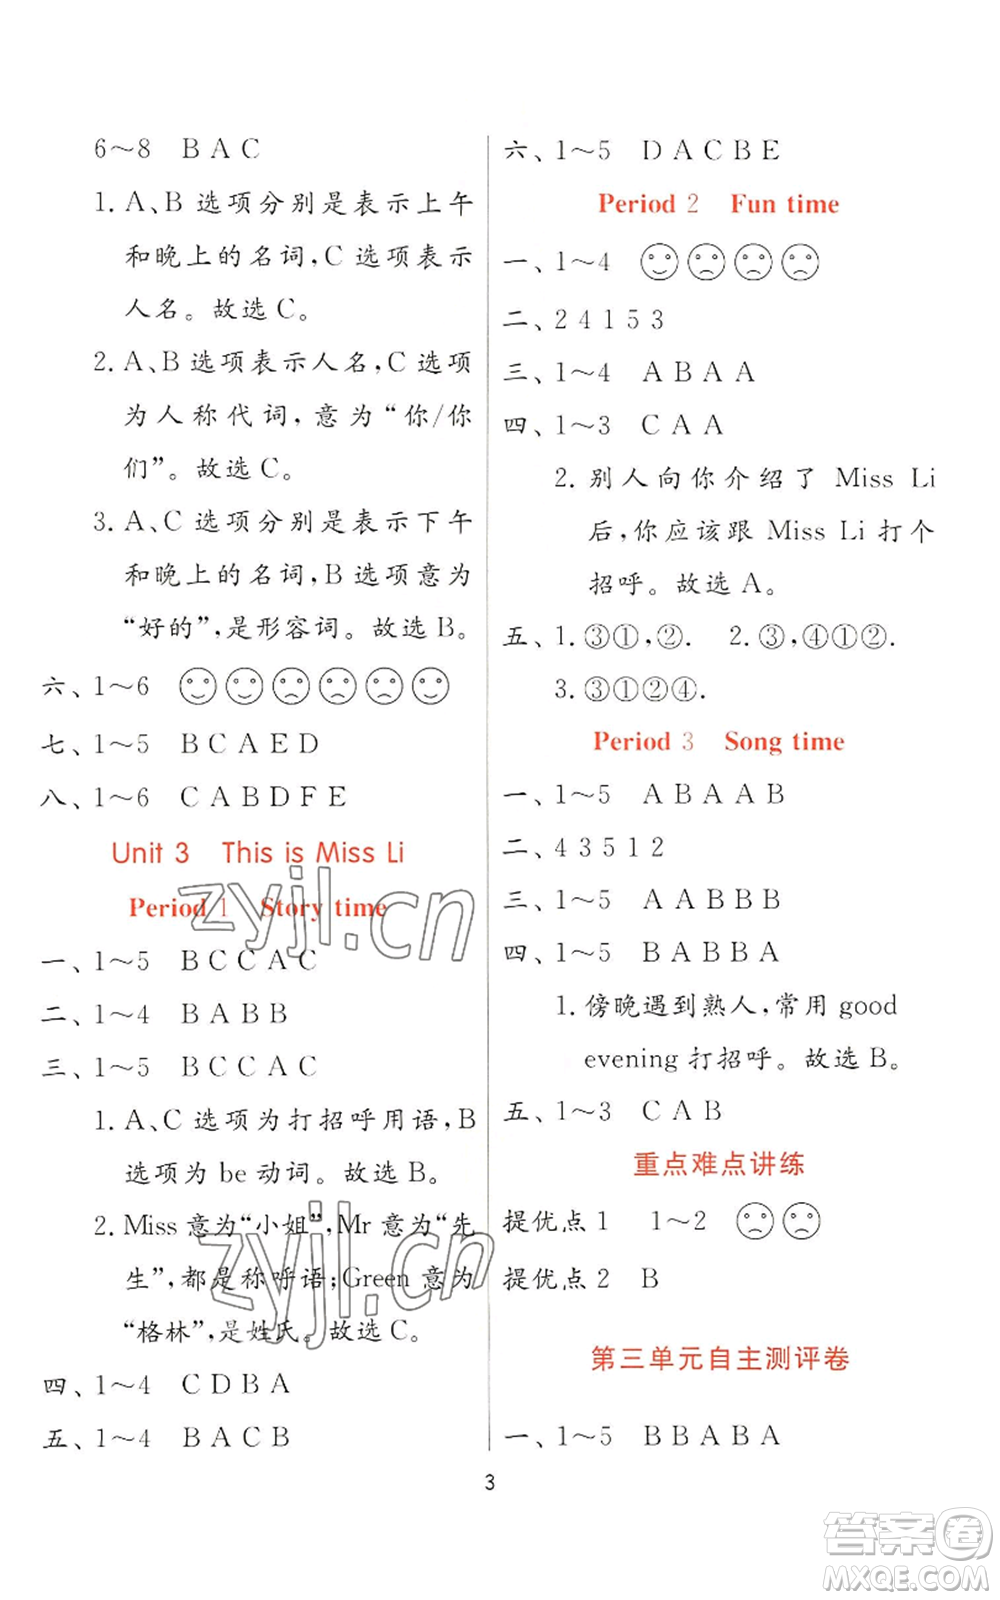 6～8 B A C
1. A、B 选项分别是表示上午
和晚上的名词,C 选项表示
人名。故选 C。
2. A、B 选项表示人名,C 选项
为人称代词,意为“你/你
们”。故选 C。
3. A、C 选项分别是表示下午
和晚上的名词,B 选项意为
“好的”,是形容词。故选 B。
六、1～6
七、1～5 B C A E D
八、1～6 C A B D F E
Unit 3 This is Miss Li
Period 1 Story time
一、1～5 B C C A C
二、1～4 B A B B
三、1～5 B C C A C
1. A、C 选项为打招呼用语,B
选项为 be 动词。故选 B。
2. Miss 意为“小姐”,Mr 意为“先
生”,都是称呼语;Green 意为
“格林”,是姓氏。故选 C。
四、1～4 C D B A
五、1～4 B A C B
六、1～5 D A C B E
Period 2 Fun time
一、1～4
二、2 4 1 5 3
三、1～4 A B A A
四、1～3 C A A
2. 别人向你介绍了 Miss Li
后,你应该跟 Miss Li 打个
招呼。故选 A。
五、1. ③①,②. 2. ③,④①②.
3. ③①②④.
Period 3 Song time
一、1～5 A B A A B
二、4 3 5 1 2
三、1～5 A A B B B
四、1～5 B A B B A
1. 傍晚遇到熟人,常用 good
evening 打招呼。故选 B。
五、1～3 C A B
重点难点讲练
提优点 1 1～2
提优点 2 B
第三单元自主测评卷
一、1～5 B B A B A
3
zyjl.cn
zyjl.cn
答案卷
MXQE.COM